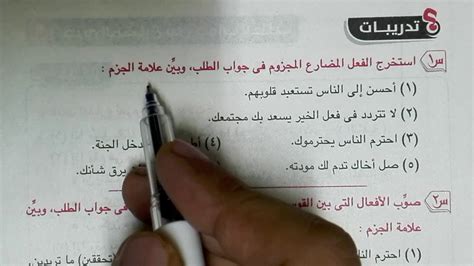 تدريبات
س١ استخرج الفعل المضارع المجزوم فى جواب الطلب، وبيِّن علامة الجزم :
(١) أحسن إلى الناس تستعبد قلوبهم.
(٢) لا تتردد فى فعل الخير يسعد بك مجتمعك.
(٣) احترم الناس يحترموك. (٤) دخل الجنة.
(٥) صل أخاك تدم لك مودته. يرق شأنك.
س٢ صوِّب الأفعال التى بين فى جواب الطلب، وبيِّن
علامة الجزم :
(١) (تحققين) ما تريدين.